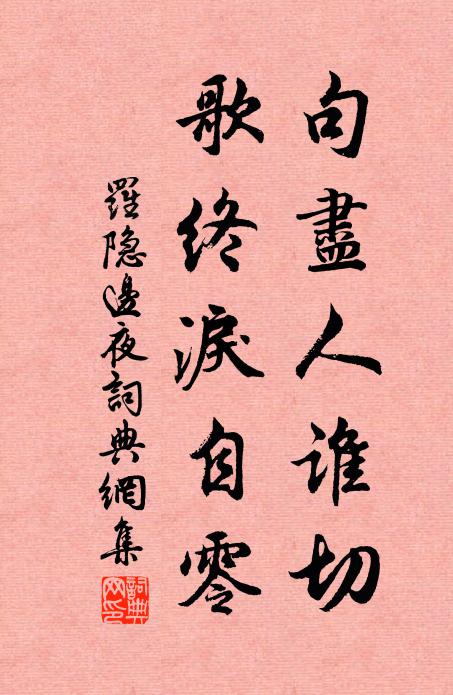 句盡人誰切
歌終淚自零
羅隐邊夜詞典網集
詞典网印